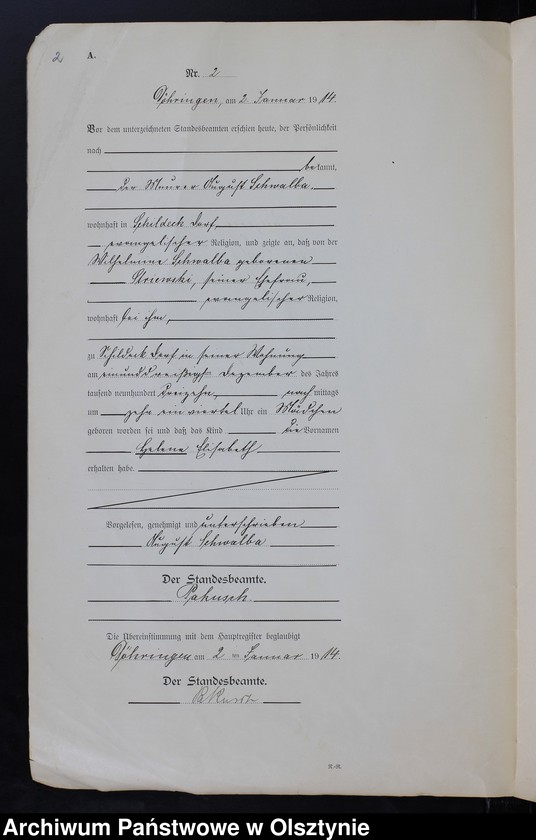 2
A.
Nr. 2
Döhringen, am 2 Januar 1914.
Vor dem unterzeichneten Standesbeamten erschien heute, der Persönlichkeit
nach
bekannt,
der Maurer August Schwalba,
wohnhaft in Schildeck Dorf,
evangelischer Religion, und zeigte an, daß von der
Wilhelmine Schwalba geborenen
Striewski, seiner Ehefrau,
evangelischer Religion,
wohnhaft bei ihm,
zu Schildeck Dorf in seiner Wohnung
am einunddreißigsten Dezember des Jahres
tausend neunhundert dreizehn, nachmittags
um zehn ein viertel Uhr ein Mädchen
geboren worden sei und daß das Kind die Vornamen
Helene Elisabeth
erhalten habe.
Vorgelesen, genehmigt und unterschrieben
August Schwalba
Der Standesbeamte.
Die Übereinstimmung mit dem Hauptregister beglaubigt
Döhringen am 2 ten Januar 1914.
Der Standesbeamte.
Archiwum Państwowe w Olsztynie